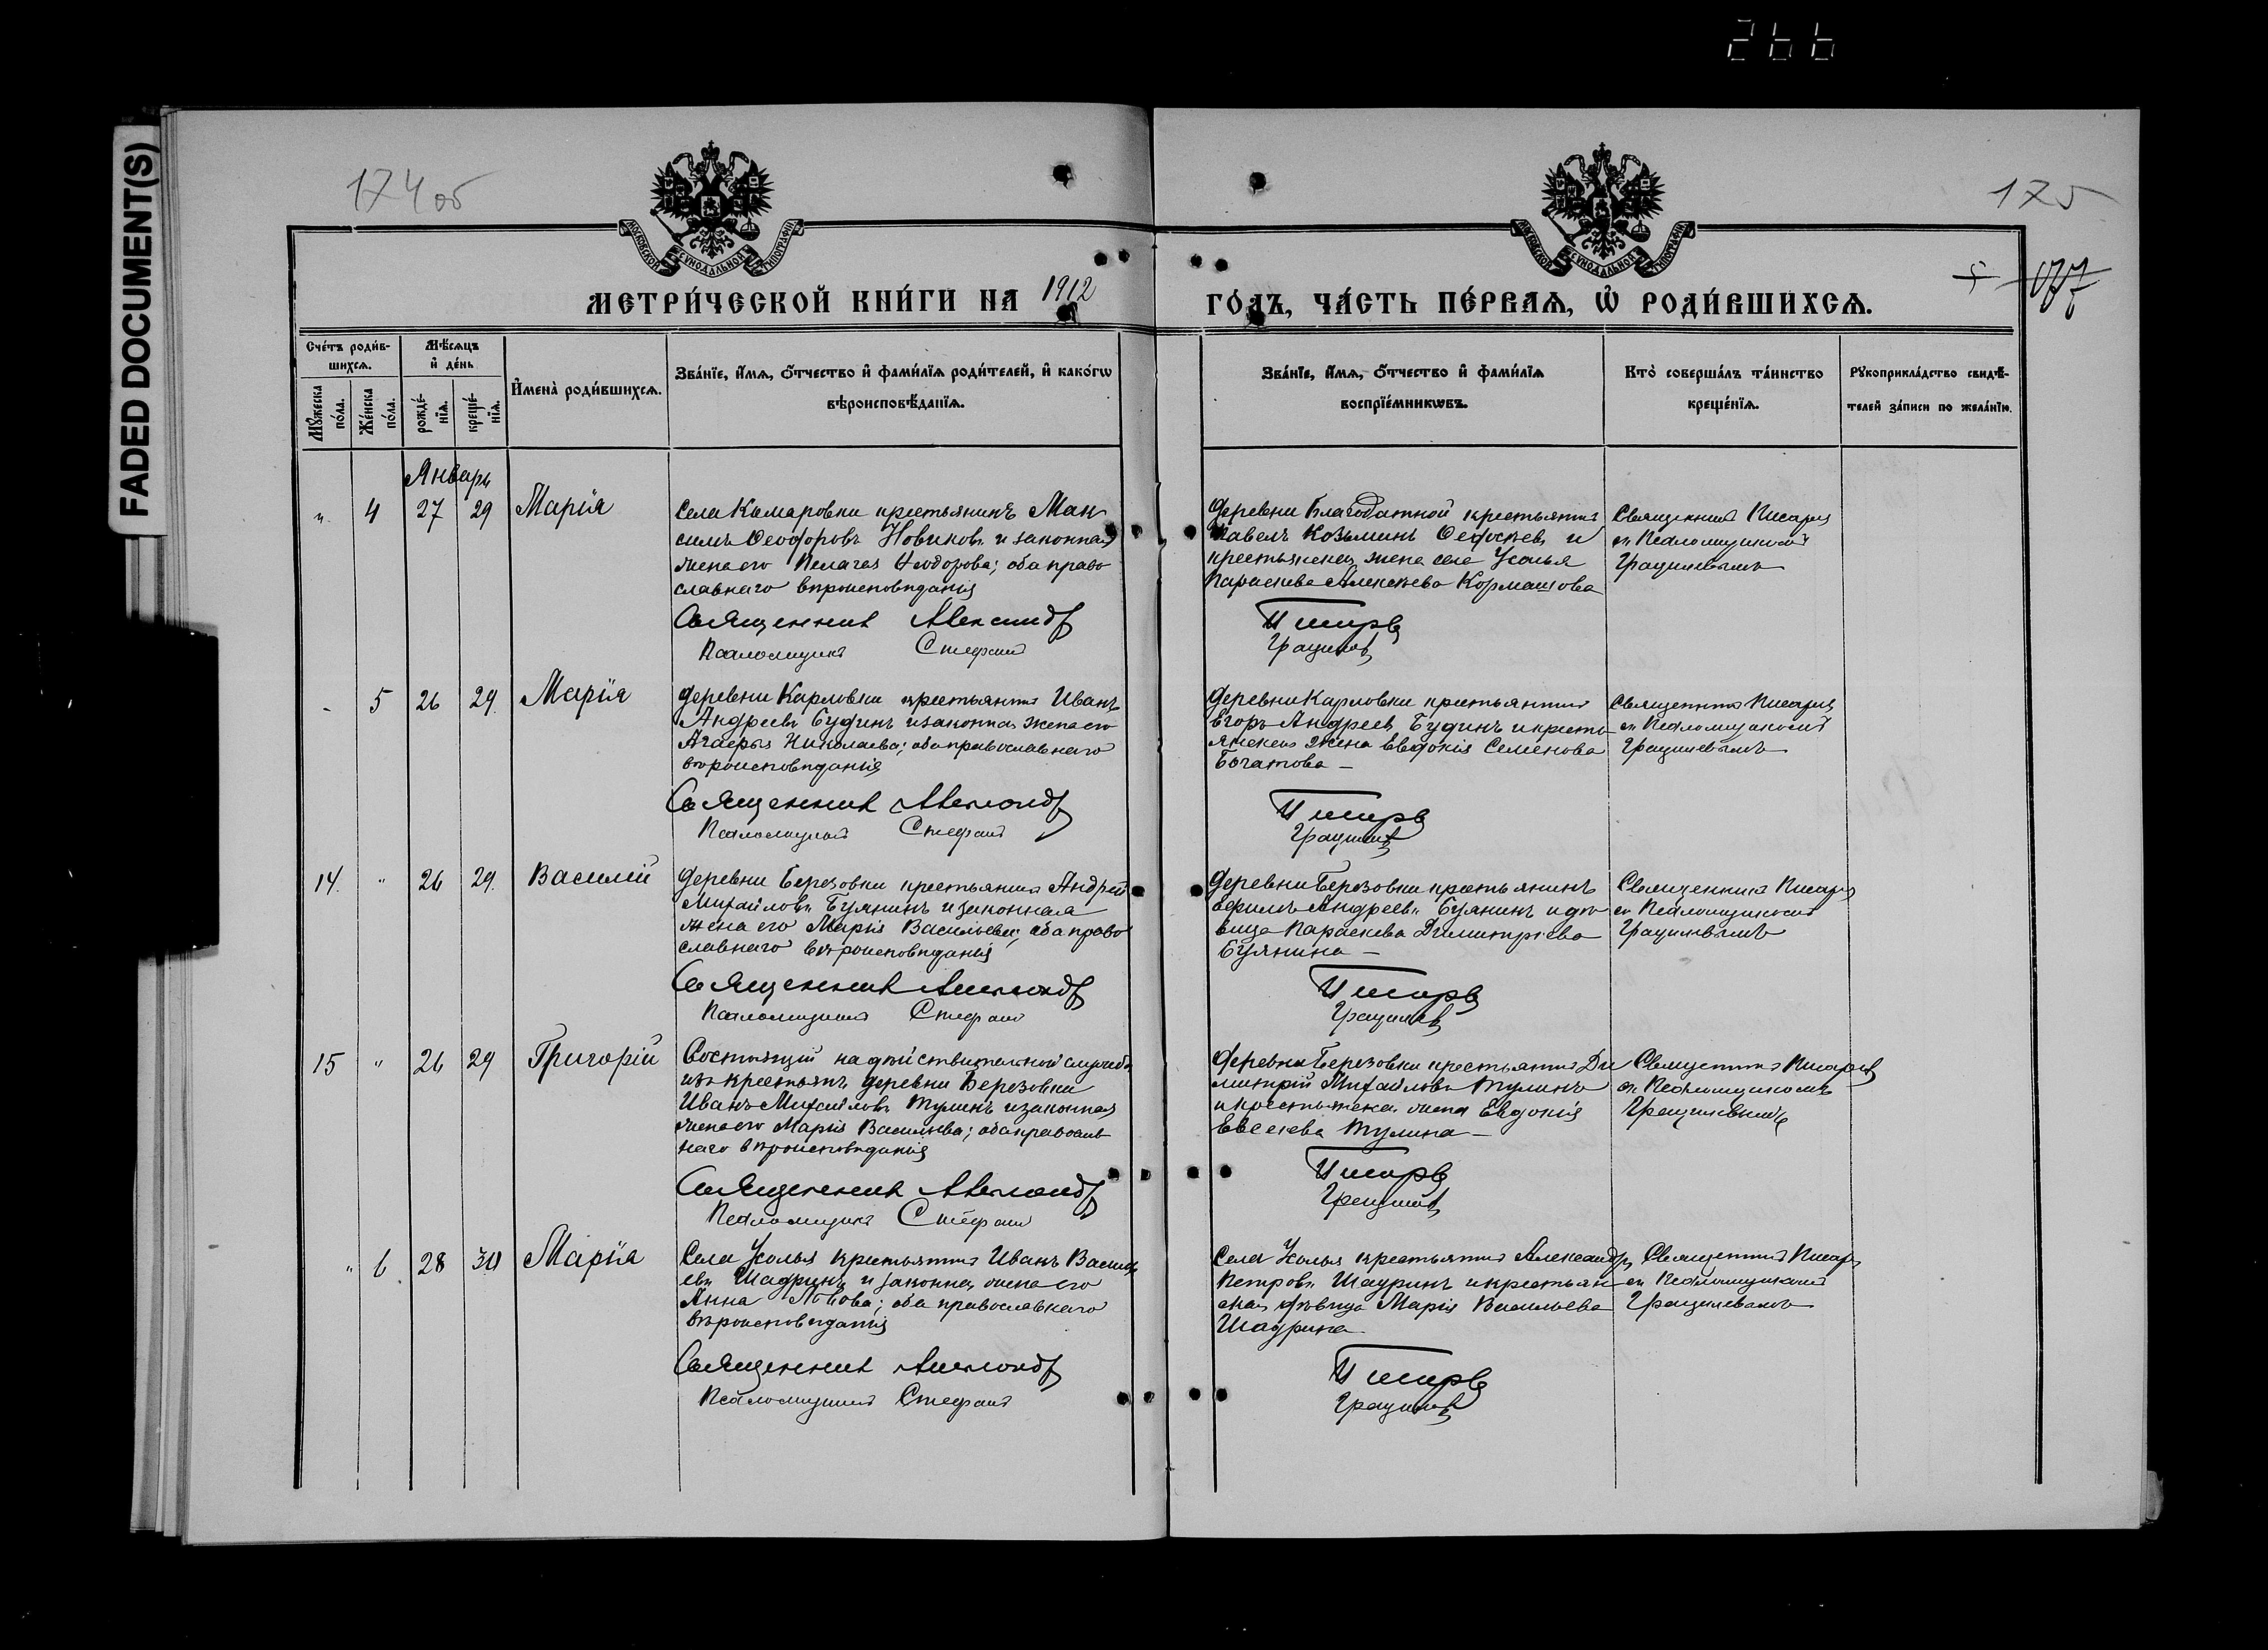 266
FADED DOCUMENT(S)
174 об
175
МОСКОВСКОЙ СУНОДАЛЬНОЙ ТИПОГРАФІИ
МОСКОВСКОЙ СУНОДАЛЬНОЙ ТИПОГРАФІИ
МЕТРИ́ЧЕСКОЙ КНИ́ГИ НА 1912 ГО́ДЪ, ЧА́СТЬ ПЕ́РВАѦ, Ѡ҆ РОДИ́ВШИХСѦ.
Сче́тъ роди́в-
шихсѧ.
Мꙋ́жеска по́ла.
Же́нска по́ла.
Мѣ́сѧцъ
и҆ де́нь
рожде́-
нїѧ.
креще́-
нїѧ.
И҆мена̀ роди́вшихсѧ.
Зва́нїе, и҆́мѧ, ѻ҆́тчество и҆ фами́лїѧ роди́телей, и҆ како́гѡ
вѣроисповѣ́данїѧ.
Зва́нїе, и҆́мѧ, ѻ҆́тчество и҆ фами́лїѧ
воспрїе́мникѡвъ.
Кто̀ соверша́лъ та́инство
креще́нїѧ.
Рꙋкоприкла́дство свидѣ́-
телей за́писи по жела́нїю.
Январь
" 4 27 29 Марія
Села Комаровки крестьянинъ Мак
симъ Ѳеодоровъ Новиковъ и законная
жена его Пелагея Ѳеодорова; оба право
славнаго вѣроисповѣданія
Священникъ Александръ
Псаломщикъ Стефанъ
Деревни Благодатной крестьянинъ
Павелъ Козьминъ и
крестьянская жена села Усолья
Параскева Алексѣева
Писаревъ
Грацилевъ
Священникъ Писаревъ
съ Псаломщикомъ
Грацилевымъ
- 5 26 29 Марія
Деревни Карловки крестьянинъ Иванъ
Андреевъ Будинъ и законная жена его
Агафья Николаева; оба православнаго
вѣроисповѣданія
Священникъ Александръ
Псаломщикъ Стефанъ
Деревни Карловки крестьянинъ
Егоръ Андреевъ Будинъ и кресть
янская жена Евдокія Семенова
Богатова –
Писаревъ
Грацилевъ
Священникъ Писаревъ
съ Псаломщикомъ
Грацилевымъ
14. " 26 29. Василій
Деревни Березовки крестьянинъ Андрей
Михайловъ Бузянинъ и законная
жена его Марія Васильева; оба право
славнаго вѣроисповѣданія
Священникъ Александръ
Псаломщикъ Стефанъ
Деревни Березовки крестьянинъ
Ефимъ Андреевъ и дѣ
вица Параскева Димитріева
Писаревъ
Грацилевъ
Священникъ Писаревъ
съ Псаломщикомъ
Грацилевымъ
15 " 26 29 Григорій
Состоящій на дѣйствительной службѣ
изъ крестьянъ деревни Березовки
Иванъ Михайловъ Тулинъ и законная
жена его Марія Васильева; оба православ
наго вѣроисповѣданія
Священникъ Александръ
Псаломщикъ Стефанъ
Деревни Березовки крестьянинъ Ди
митрій Михайловъ Тулинъ
и крестьянская жена Евдокія
Евсеева Тулина –
Писаревъ
Грацилевъ
Священникъ Писаревъ
съ Псаломщикомъ
Грацилевымъ
" 6 28 30 Марія
Села Усолья крестьянинъ Иванъ Василь
евъ Шадринъ и законная жена его
Анна Львова; оба православнаго
вѣроисповѣданія
Священникъ Александръ
Псаломщикъ Стефанъ
Села Усолья крестьянинъ Александръ
Петровъ Шадринъ и крестьян
ская дѣвица Марія Васильева
Шадрина
Писаревъ
Грацилевъ
Священникъ Писаревъ
съ Псаломщикомъ
Грацилевымъ